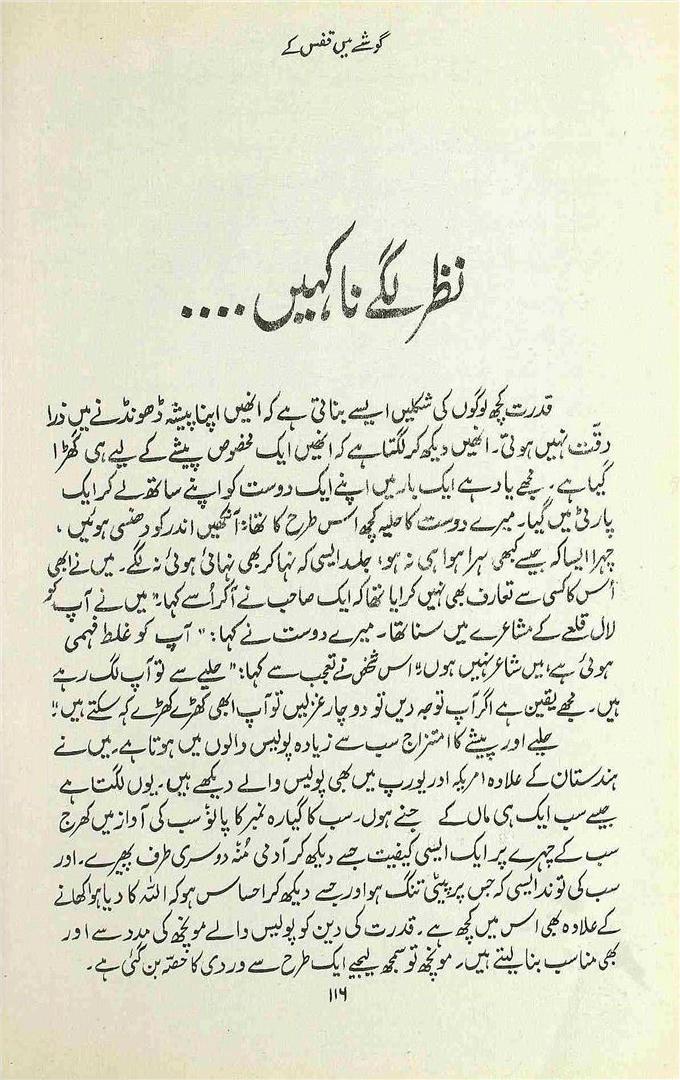 گوشے میں قفس کے
نظر لگے نا کہیں ....
قدرت کچھ لوگوں کی شکلیں ایسے بناتی ہے کہ انھیں اپنا پیشہ ڈھونڈنے میں ذرا
دقّت نہیں ہوتی۔ انھیں دیکھ کر لگتا ہے کہ انھیں ایک مخصوص پیشے کے لیے ہی گھڑا
گیا ہے۔ مجھے یاد ہے ایک بار میں اپنے ایک دوست کو اپنے ساتھ لے کر ایک
پارٹی میں گیا۔ میرے دوست کا حلیہ کچھ اس طرح کا تھا: آنکھیں اندر کو دھنسی ہوئیں،
چہرا ایسا کہ جیسے کبھی ہرا ہوا ہی نہ ہو، جلد ایسی کہ نہا کر بھی نہائی ہوئی نہ لگے۔ میں نے ابھی
اُس کا کسی سے تعارف بھی نہیں کرایا تھا کہ ایک صاحب نے آکر اُسے کہا۔ "میں نے آپ کو
لال قلعے کے مشاعرے میں سنا تھا۔ میرے دوست نے کہا: "آپ کو غلط فہمی
ہوئی ہے، میں شاعر نہیں ہوں" اس شخص نے تعجب سے کہا: "حلیے سے تو آپ لگ رہے
ہیں۔ مجھے یقین ہے اگر آپ توجہ دیں تو دو چار غزلیں تو آپ ابھی کھڑے کھڑے کہہ سکتے ہیں"
حلیے اور پیشے کا امتزاج سب سے زیادہ پولیس والوں میں ہوتا ہے۔ میں نے
ہندستان کے علاوہ امریکہ اور یورپ میں بھی پولیس والے دیکھے ہیں۔ یوں لگتا ہے
جیسے سب ایک ہی ماں کے جنے ہوں۔ سب کا گیارہ نمبر کا پانؤ سب کی آواز میں کھرج
سب کے چہرے پر ایک ایسی کیفیت جسے دیکھ کر آدمی مُنہ دوسری طرف پھیرے۔ اور
سب کی توند ایسی کہ جس پر پیٹی تنگ ہو اور جسے دیکھ کر احساس ہو کہ اللہ کا دیا ہوا کھانے
کے علاوہ بھی اس میں کچھ ہے۔ قدرت کی دین کو پولیس والے مونچھ کی مدد سے اور
بھی مناسب بنا لیتے ہیں۔ مونچھ تو سمجھ لیجیے ایک طرح سے وردی کا حصّہ بن گئی ہے۔
۱۱۶